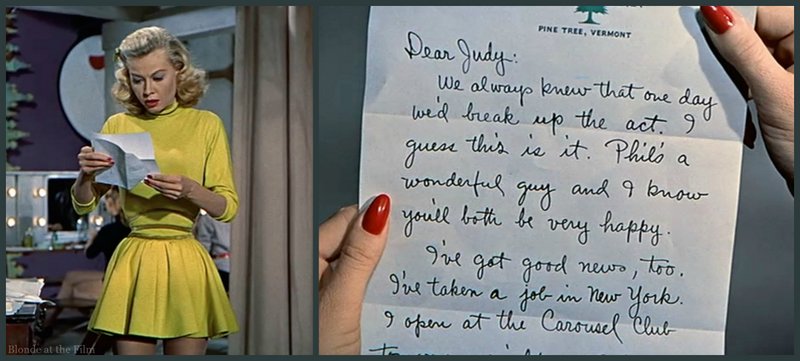 PINE TREE, VERMONT
Dear Judy:
We always knew that one day
we'd break up the act. I
guess this is it. Phil's a
wonderful guy and I know
you'll both be very happy.
I've got good news, too.
I've taken a job in New York.
I open at the Carousel Club
Blonde at the Film